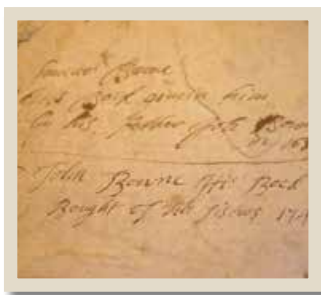 Samuel Bowne
his Book given him
by his father John Bown
John Bowne His Book
Bought of the